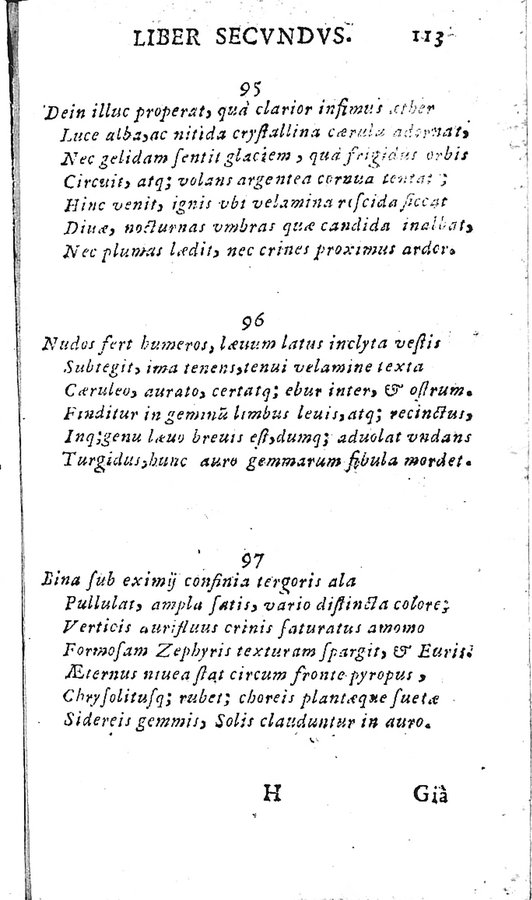 LIBER SECVNDVS. 113
95
Dein illuc properat, quà clarior infimus æther
Luce alba, ac nitida crystallina cærula adornat,
Nec gelidam sentit glaciem, quà frigidus orbis
Circuit, atq; volans argentea cornua tentat;
Hinc venit, ignis vbi velamina riscida siccat
Diuæ, nocturnas vmbras quæ candida inalbat,
Nec plumas lædit, nec crines proximus ardor.
96
Nudos fert humeros, læuum latus inclyta vestis
Subtegit, ima tenens, tenui velamine texta
Cæruleo, aurato, certatq; ebur inter, & ostrum.
Finditur in geminũ limbus leuis, atq; recinctus,
Inq; genu læuo breuis est, dumq; aduolat vndans
Turgidus, hunc auro gemmarum fibula mordet.
97
Bina sub eximij confinia tergoris ala
Pullulat, ampla satis, vario distincta colore;
Verticis aurifluus crinis saturatus amomo
Formosam Zephyris texturam spargit, & Euris:
Æternus niuea stat circum fronte pyropus,
Chrysolitusq; rubet; choreis plantæque suetæ
Sidereis gemmis, Solis clauduntur in auro.
H Già